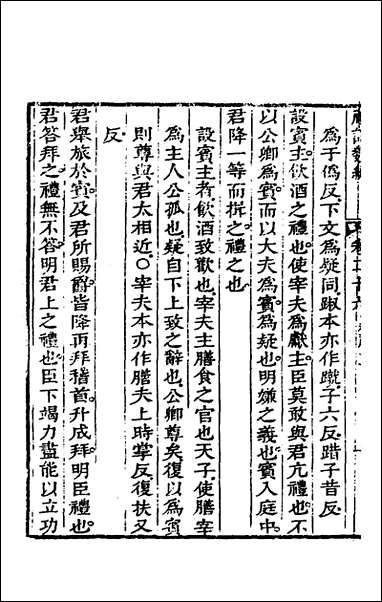 為于偽反下文為疑同踧本亦作蹴子六反踖子昔反
設賓主飲酒之禮也使宰夫為獻主臣莫敢與君亢禮也不
以公卿為賓而以大夫為賓為疑也明嫌之義也賓入庭中
君降一等而揖之禮之也
設賓主者飲酒致歡也宰夫主膳食之官也天子使膳宰
為主人公孤也疑自下上致之辭也公卿尊矣復以為賓
則尊與君太相近〇宰夫本亦作膳夫上時掌反復扶又
反
君舉旅於賓及君所賜爵皆降再拜稽首升成拜明臣禮也
君答拜之禮無不答明君上之禮也臣下竭力盡能以立功